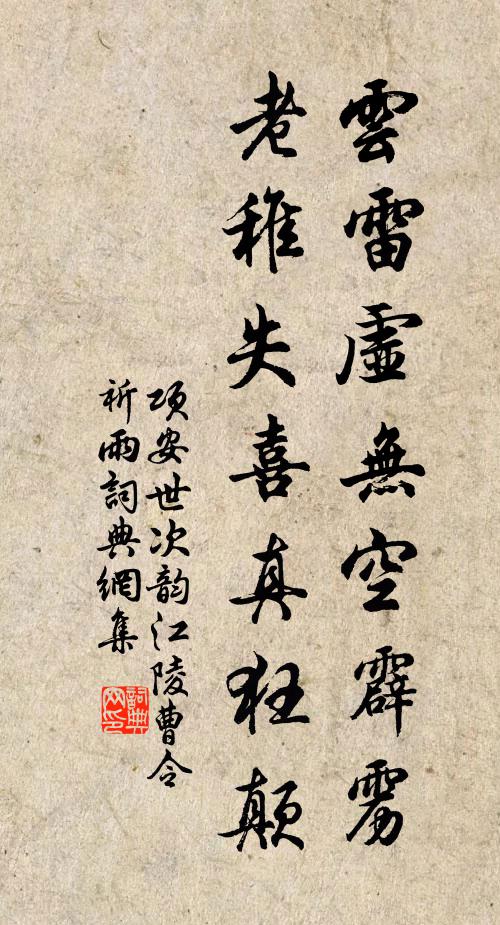 雲雷虛無空霹雳
老稚失喜真狂颠
項安世次韵江陵曹令
祈雨詞典網集
詞典网印